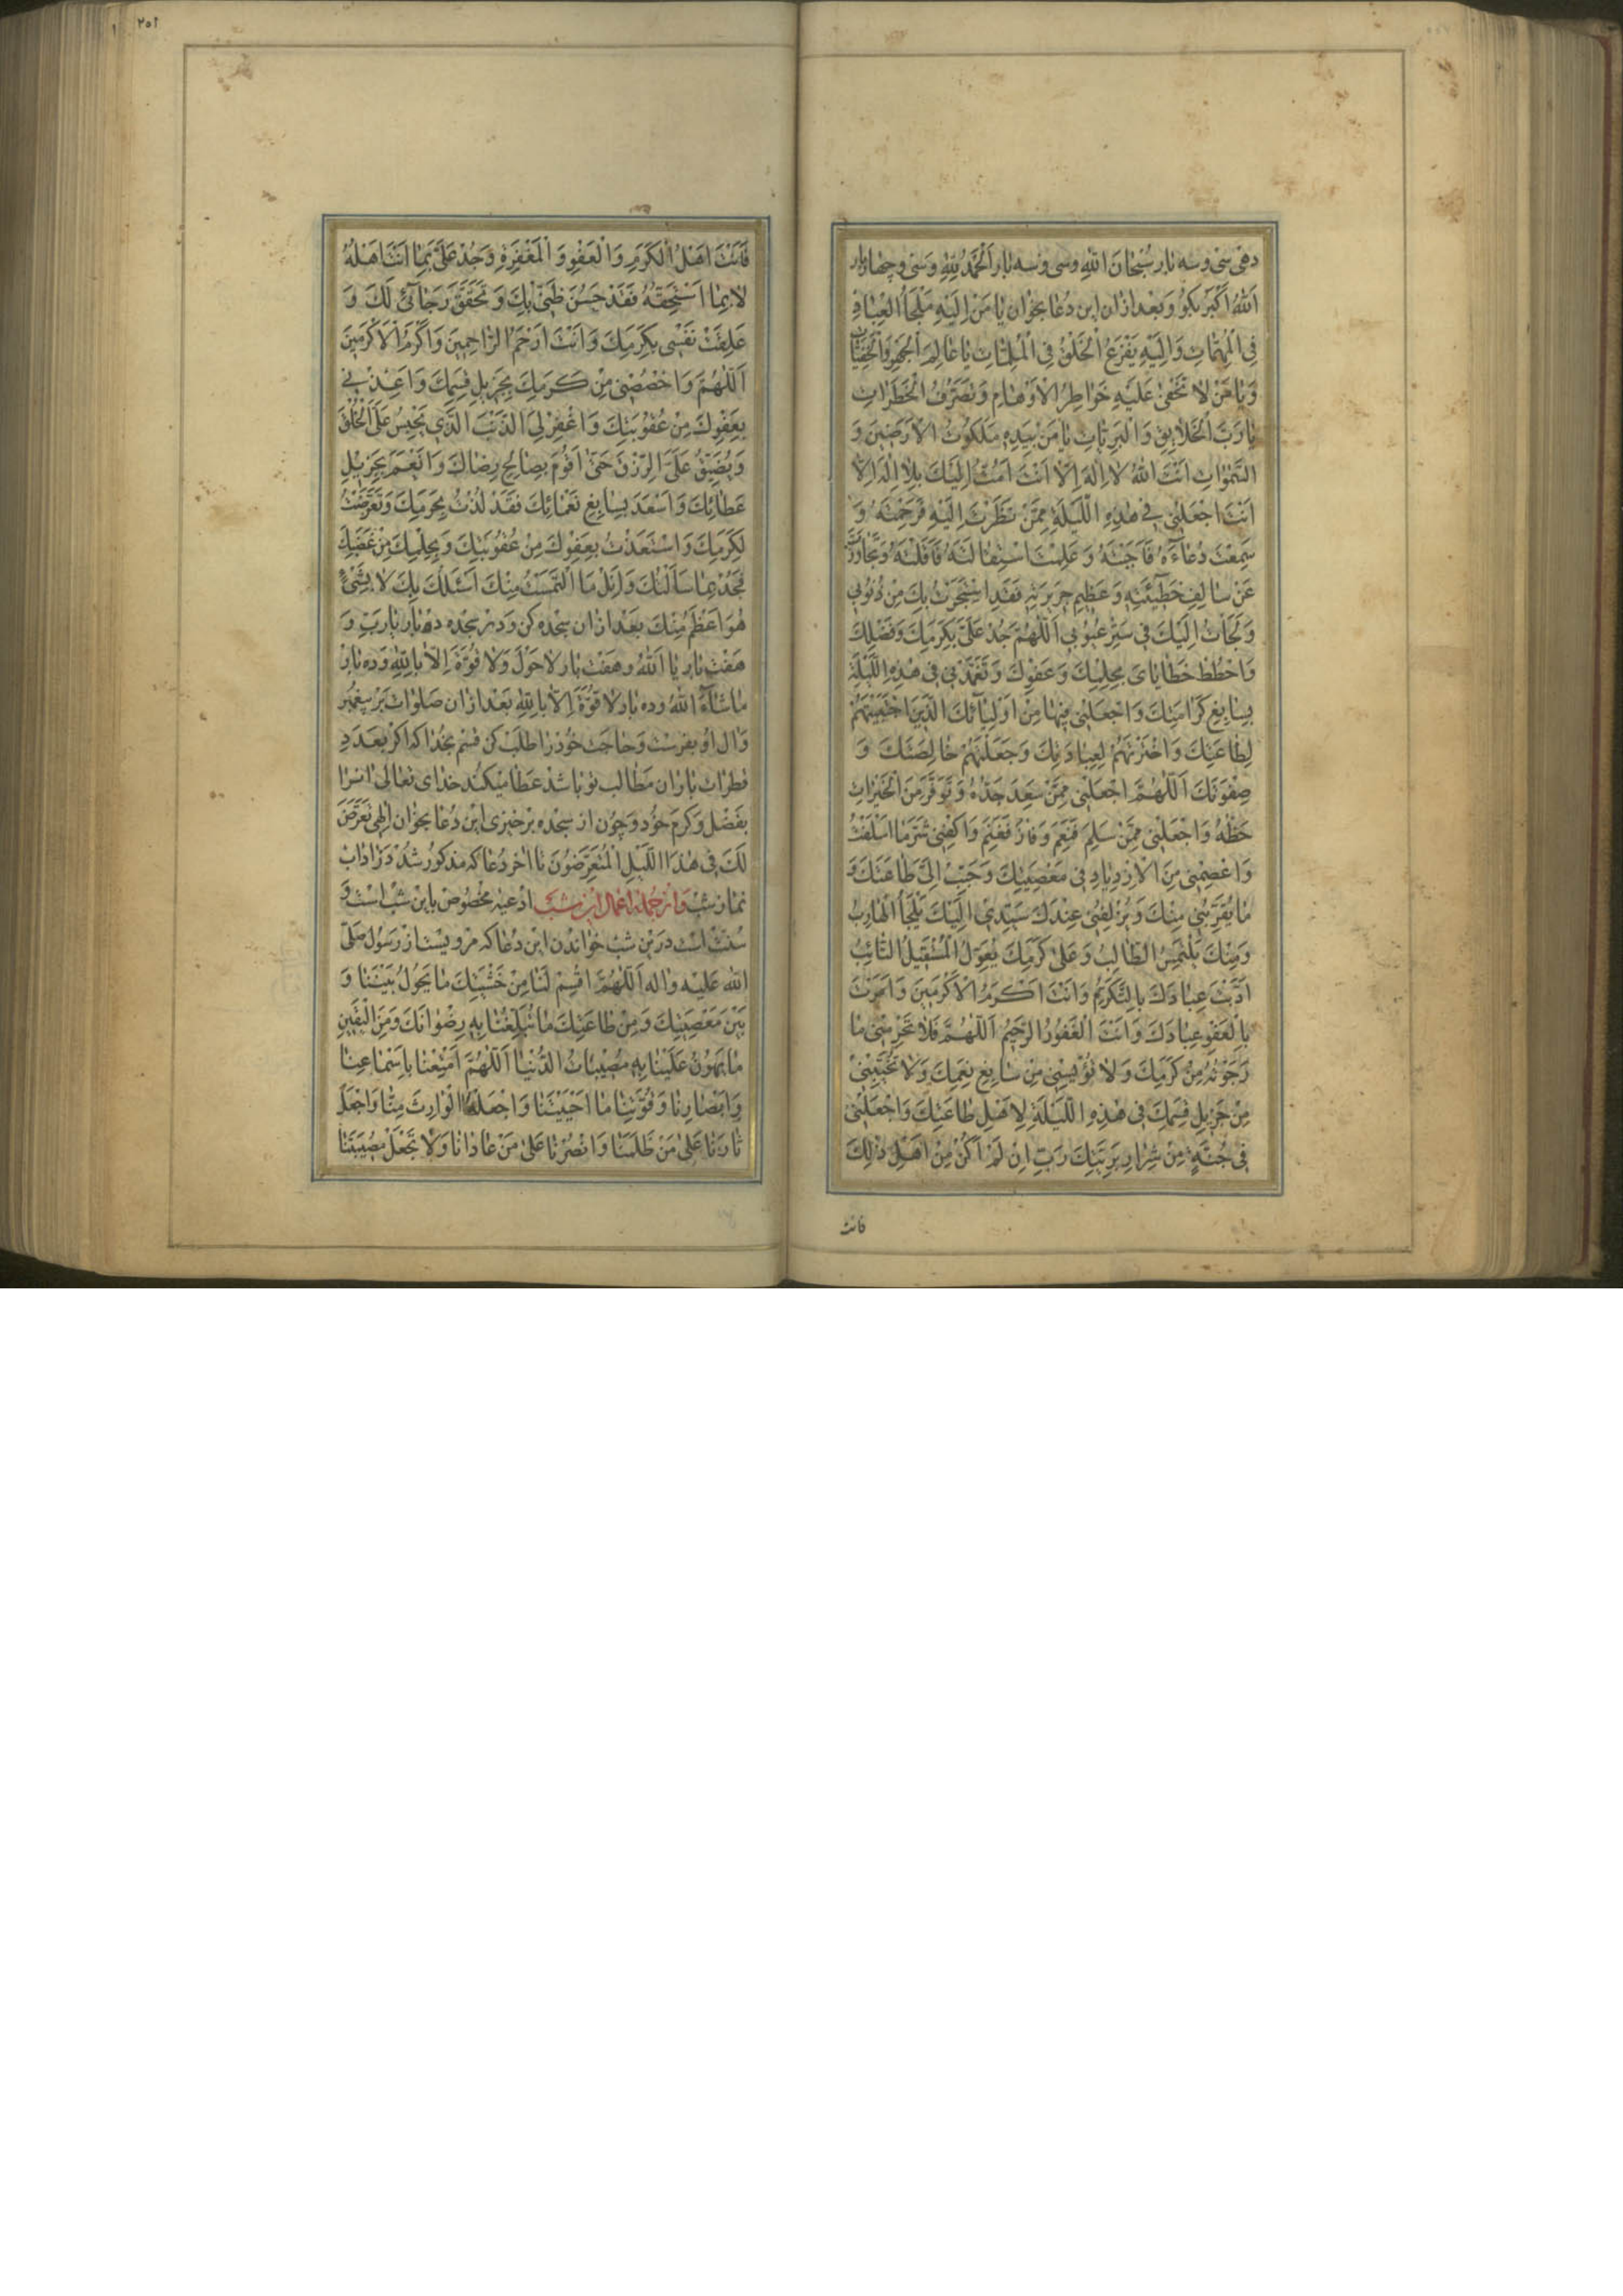 دهی سی و سه بار سُبْحانَ اللهِ و سی و سه بار اَلْحَمْدُ لِلّٰهِ و سی و چهار بار
اَللهُ اَکْبَر بکو و بعد ازان این دُعا بخوان یا مَنْ اِلَیْهِ مَلْجَأُ الْعِبادِ
فِی الْمُهِمّاتِ وَاِلَیْهِ یَفْزَعُ الْخَلْقُ فِی الْمُلِمّاتِ یا عالِمَ الْجَهْرِ وَالْخَفِیّاتِ
وَیا مَنْ لا تَخْفیٰ عَلَیْهِ خَواطِرُ الْاَوْهامِ وَتَصَرُّفُ الْخَطَراتِ
یا رَبَّ الْخَلایِقِ وَالْبَرِیّاتِ یا مَنْ بِیَدِهِ مَلَکُوتُ الْاَرَضینَ وَ
السَّمٰواتِ اَنْتَ اللهُ لا اِلٰهَ اِلّا اَنْتَ اَمُتُّ اِلَیْکَ بِلا اِلٰهَ اِلّا
اَنْتَ اجْعَلْنی فی هٰذِهِ اللَّیْلَةِ مِمَّنْ نَظَرْتَ اِلَیْهِ فَرَحِمْتَهُ وَ
سَمِعْتَ دُعاءَهُ فَاَجَبْتَهُ وَعَلِمْتَ اسْتِقالَتَهُ فَاَقَلْتَهُ وَتَجاوَزْتَ
عَنْ سالِفِ خَطیئَتِهِ وَعَظیمِ جَریرَتِهِ فَقَدِ اسْتَجَرْتُ بِکَ مِنْ ذُنُوبی
وَلَجَأْتُ اِلَیْکَ فی سَتْرِ عُیُوبی اَللّٰهُمَّ جُدْ عَلَیَّ بِکَرَمِکَ وَفَضْلِکَ
وَاحْطُطْ خَطایایَ بِحِلْمِکَ وَعَفْوِکَ وَتَغَمَّدْنی فی هٰذِهِ اللَّیْلَةِ
بِسابِغِ کَرامَتِکَ وَاجْعَلْنی فیها مِنْ اَوْلِیائِکَ الَّذینَ اجْتَبَیْتَهُمْ
لِطاعَتِکَ وَاخْتَرْتَهُمْ لِعِبادَتِکَ وَجَعَلْتَهُمْ خالِصَتَکَ وَ
صِفْوَتَکَ اَللّٰهُمَّ اجْعَلْنی مِمَّنْ سَعِدَ جَدُّهُ وَتَوَفَّرَ مِنَ الْخَیْراتِ
حَظُّهُ وَاجْعَلْنی مِمَّنْ سَلِمَ فَنَعِمَ وَفازَ فَغَنِمَ وَاکْفِنی شَرَّ ما اَسْلَفْتُ
وَاعْصِمْنی مِنَ الْاِزْدِیادِ فی مَعْصِیَتِکَ وَحَبِّبْ اِلَیَّ طاعَتَکَ وَ
ما یُقَرِّبُنی مِنْکَ وَیُزْلِفُنی عِنْدَکَ سَیِّدی اِلَیْکَ یَلْجَأُ الْهارِبُ
وَمِنْکَ یَلْتَمِسُ الطّالِبُ وَعَلیٰ کَرَمِکَ یُعَوِّلُ الْمُسْتَقیلُ التّائِبُ
اَدَّبْتَ عِبادَکَ بِالتَّکَرُّمِ وَاَنْتَ اَکْرَمُ الْاَکْرَمینَ وَاَمَرْتَ
بِالْعَفْوِ عِبادَکَ وَاَنْتَ الْغَفُورُ الرَّحیمُ اَللّٰهُمَّ فَلا تَحْرِمْنی ما
رَجَوْتُهُ مِنْ کَرَمِکَ وَلا تُؤْیِسْنی مِنْ سابِغِ نِعَمِکَ وَلا تُخَیِّبْنی
مِنْ جَزیلِ قِسَمِکَ فی هٰذِهِ اللَّیْلَةِ لِاَهْلِ طاعَتِکَ وَاجْعَلْنی
فی جُنَّةٍ مِنْ شِرارِ بَرِیَّتِکَ رَبِّ اِنْ لَمْ اَکُنْ مِنْ اَهْلِ ذٰلِکَ
فانت
٢٥١
فَاَنْتَ اَهْلُ الْکَرَمِ وَالْعَفْوِ وَالْمَغْفِرَةِ وَجُدْ عَلَیَّ بِما اَنْتَ اَهْلُهُ
لا بِما اَسْتَحِقُّهُ فَقَدْ حَسُنَ ظَنّی بِکَ وَتَحَقَّقَ رَجائی لَکَ وَ
عَلِقَتْ نَفْسی بِکَرَمِکَ وَاَنْتَ اَرْحَمُ الرّاحِمینَ وَاَکْرَمُ الْاَکْرَمینَ
اَللّٰهُمَّ وَاخْصُصْنی مِنْ کَرَمِکَ بِجَزیلِ قِسَمِکَ وَاَعِذْنی
بِعَفْوِکَ مِنْ عُقُوبَتِکَ وَاغْفِرْ لِیَ الذَّنْبَ الَّذی یَحْبِسُ عَلَیَّ الْخُلُقَ
وَیُضَیِّقُ عَلَیَّ الرِّزْقَ حَتّیٰ اَقُومَ بِصالِحِ رِضاکَ وَاَنْعَمَ بِجَزیلِ
عَطائِکَ وَاَسْعَدَ بِسابِغِ نَعْمائِکَ فَقَدْ لُذْتُ بِحَرَمِکَ وَتَعَرَّضْتُ
لِکَرَمِکَ وَاسْتَعَذْتُ بِعَفْوِکَ مِنْ عُقُوبَتِکَ وَبِحِلْمِکَ مِنْ غَضَبِکَ
فَجُدْ بِما سَأَلْتُکَ وَاَنِلْ مَا الْتَمَسْتُ مِنْکَ اَسْئَلُکَ بِکَ لا بِشَیْءٍ
هُوَ اَعْظَمُ مِنْکَ بعد ازان سجده کن و در سجده ده بار یا رَبِّ و
هفت بار یا اَللهُ و هفت بار لا حَوْلَ وَلا قُوَّةَ اِلّا بِاللهِ و ده بار
ما شاءَ اللهُ و ده بار لا قُوَّةَ اِلّا بِاللهِ بعد ازان صلوات بر پیغمبر
و ال او بفرست و حاجت خود را طلب کن قسم بخدا که اکر بعدد
قطرات باران مطالب تو باشد عطا میکند خدای تعالی انرا
بفضل و کرم خود و چون از سجده برخیزی این دعا بخوان اِلٰهی تَعَرَّضَ
لَکَ فی هٰذَا اللَّیْلِ الْمُتَعَرِّضُونَ تا اخر دعا که مذکور شد در اداب
نماز شب و از جمله اعمال این شب ادعیه مخصوص باین شب است و
سنت است درین شب خواندن این دعا که مرویست از رسول صلی
الله علیه و اله اَللّٰهُمَّ اقْسِمْ لَنا مِنْ خَشْیَتِکَ ما یَحُولُ بَیْنَنا وَ
بَیْنَ مَعْصِیَتِکَ وَمِنْ طاعَتِکَ ما تُبَلِّغُنا بِهِ رِضْوانَکَ وَمِنَ الْیَقینِ
ما یَهُونُ عَلَیْنا بِهِ مُصیباتُ الدُّنْیا اَللّٰهُمَّ اَمْتِعْنا بِاَسْماعِنا
وَاَبْصارِنا وَقُوَّتِنا ما اَحْیَیْتَنا وَاجْعَلْهَا الْوارِثَ مِنّا وَاجْعَلْ
ثارَنا عَلیٰ مَنْ ظَلَمَنا وَانْصُرْنا عَلیٰ مَنْ عادانا وَلا تَجْعَلْ مُصیبَتَنا